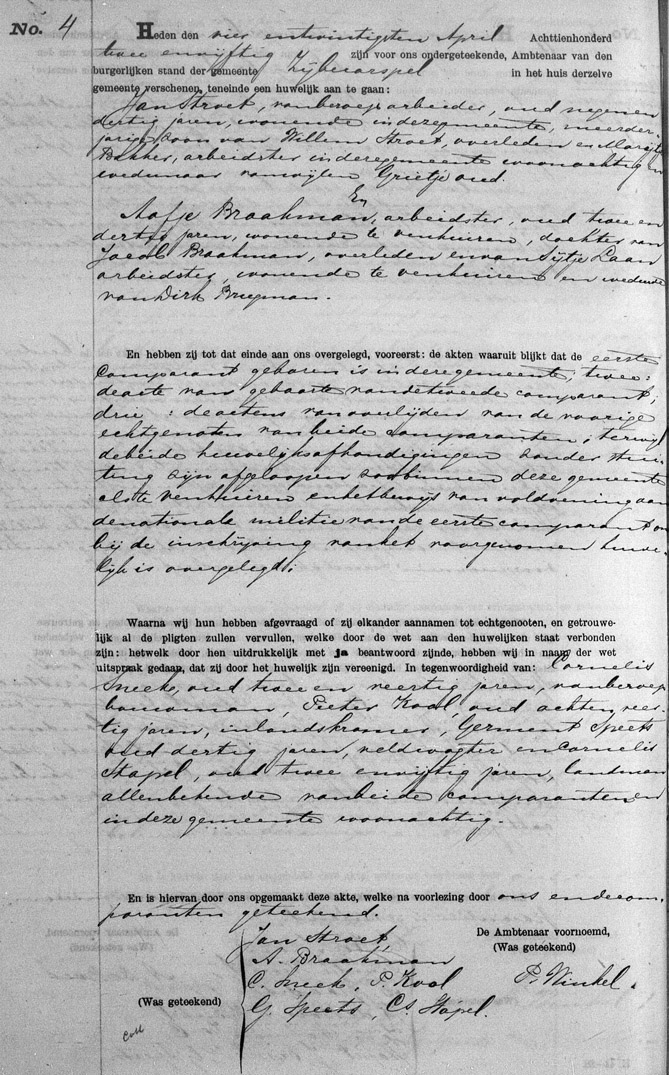 No. 4
Heden den vier entwintigsten April Achttienhonderd
twee envijftig zijn voor ons ondergeteekende, Ambtenaar van den
burgerlijken stand der gemeente Zijbecarspel in het huis derzelve
gemeente verschenen, teneinde een huwelijk aan te gaan:
Jan Stroet, vanberoep arbeider, oud negenen
dertig jaren, wonende indezegemeente, meerder
jarige zoon van Willem Stroet, overleden en Margte
Bakker, arbeidster indezegemeente woonachtig en
weduwnaar vanwijlen Grietje oud.
En
Aafje Braakman, arbeidster, oud twee en
dertig jaren, wonende te venhuizen, dochter van
Jacob Braakman, overleden envan Sijtje Laan
arbeidster, wonende te venhuizen en weduwe
van Dirk Brugman.
En hebben zij tot dat einde aan ons overgelegd, vooreerst: de akten waaruit blijkt dat de eerste
comparant geboren is indezegemeente; twee:
deacte van geboorte vandetweede comparant;
drie : deactens vanoverlijden van de voorige
echtgenoten vanbeide comparanten; terwijl
debeide huwelijksafkondigingen zonder stui-
ting zijn afgeloopen zoobinnen deze gemeente
alste venhuizen enhetbewijs van voldoening aan
denationale militie vande eerste comparant
bij de inschrijving vanhet voorgenomen huwe-
lijk is overgelegd;
Waarna wij hun hebben afgevraagd of zij elkander aannamen tot echtgenooten, en getrouwe-
lijk al de pligten zullen vervullen, welke door de wet aan den huwelijken staat verbonden
zijn: hetwelk door hen uitdrukkelijk met ja beantwoord zijnde, hebben wij in naam der wet
uitspraak gedaan, dat zij door het huwelijk zijn vereenigd. In tegenwoordigheid van: Cornelis
Sneek, oud twee en veertig jaren, vanberoep
bouwman, Pieter Kool, oud achten veer-
tig jaren, inlandskramer, Germent Speets
oud dertig jaren, veldwagter en Cornelis
Stapel, oud twee envijftig jaren, landman
allenbekende vanbeide comparanten en
indeze gemeente woonachtig.
En is hiervan door ons opgemaakt deze akte, welke na voorlezing door ons endecom-
paranten geteekend.
Jan Stroet,
De Ambtenaar voornoemd,
(Was geteekend)
A. Braakman
C. Sneek, P. Kool
P. Winkel.
(Was geteekend)
G. Speets, Cs. Stapel.
Coll